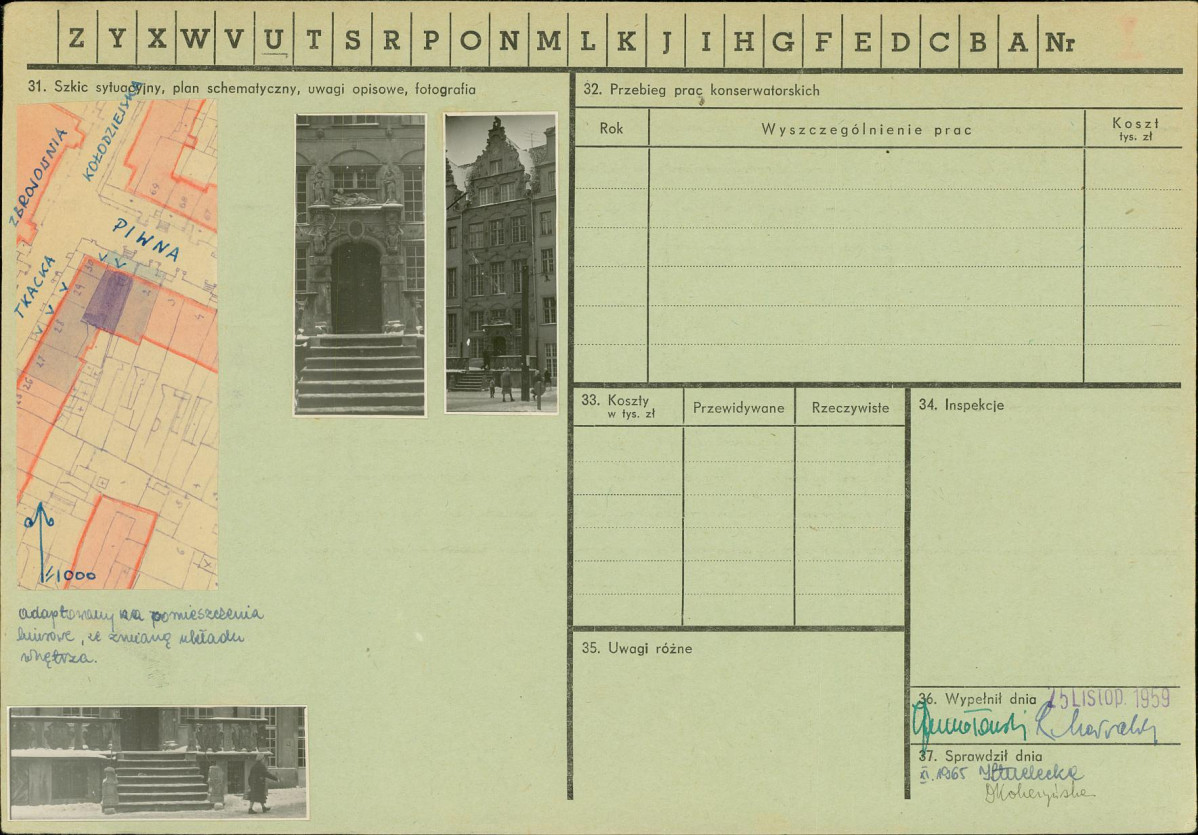 Z Y X W V U T S R P O N M L K J I H G F E D C B A Nr
31. Szkic sytuacyjny, plan schematyczny, uwagi opisowe, fotografia
ZBROJOWNIA
KOŁODZIEJSKA
PIWNA
TKACKA
69
68
30
29
28
27
26
2
3
4
1:1000
adaptowany na pomieszczenia
biurowe, ze zmianą układu
wnętrza.
32. Przebieg prac konserwatorskich
Rok
Wyszczególnienie prac
Koszt
tys. zł
33. Koszty
w tys. zł
Przewidywane
Rzeczywiste
34. Inspekcje
35. Uwagi różne
36. Wypełnił dnia 25 LISTOP. 1959
37. Sprawdził dnia
XI. 1965